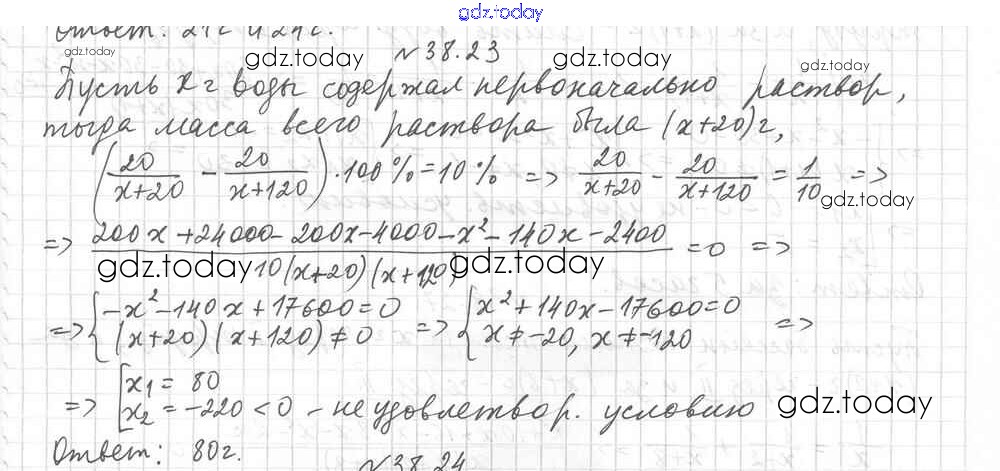 gdz.today
Ответ: 21г и 24г.
gdz.today
№ 38.23
gdz.today
gdz.today
gdz.today
Пусть x г воды содержал первоначально раствор,
тогда масса всего раствора была (x+20) г,
(20/(x+20) - 20/(x+120)) · 100% = 10% => 20/(x+20) - 20/(x+120) = 1/10 =>
gdz.today
=> (200x + 24000 - 200x - 4000 - x² - 140x - 2400)/(10(x+20)(x+120)) = 0 =>
gdz.today
gdz.today
=> { -x² - 140x + 17600 = 0 => { x² + 140x - 17600 = 0 =>
(x+20)(x+120) ≠ 0 x ≠ -20, x ≠ -120
=> [ x₁ = 80
x₂ = -220 < 0 - не удовлетвор. условию
gdz.today
Ответ: 80г.
№ 38.24